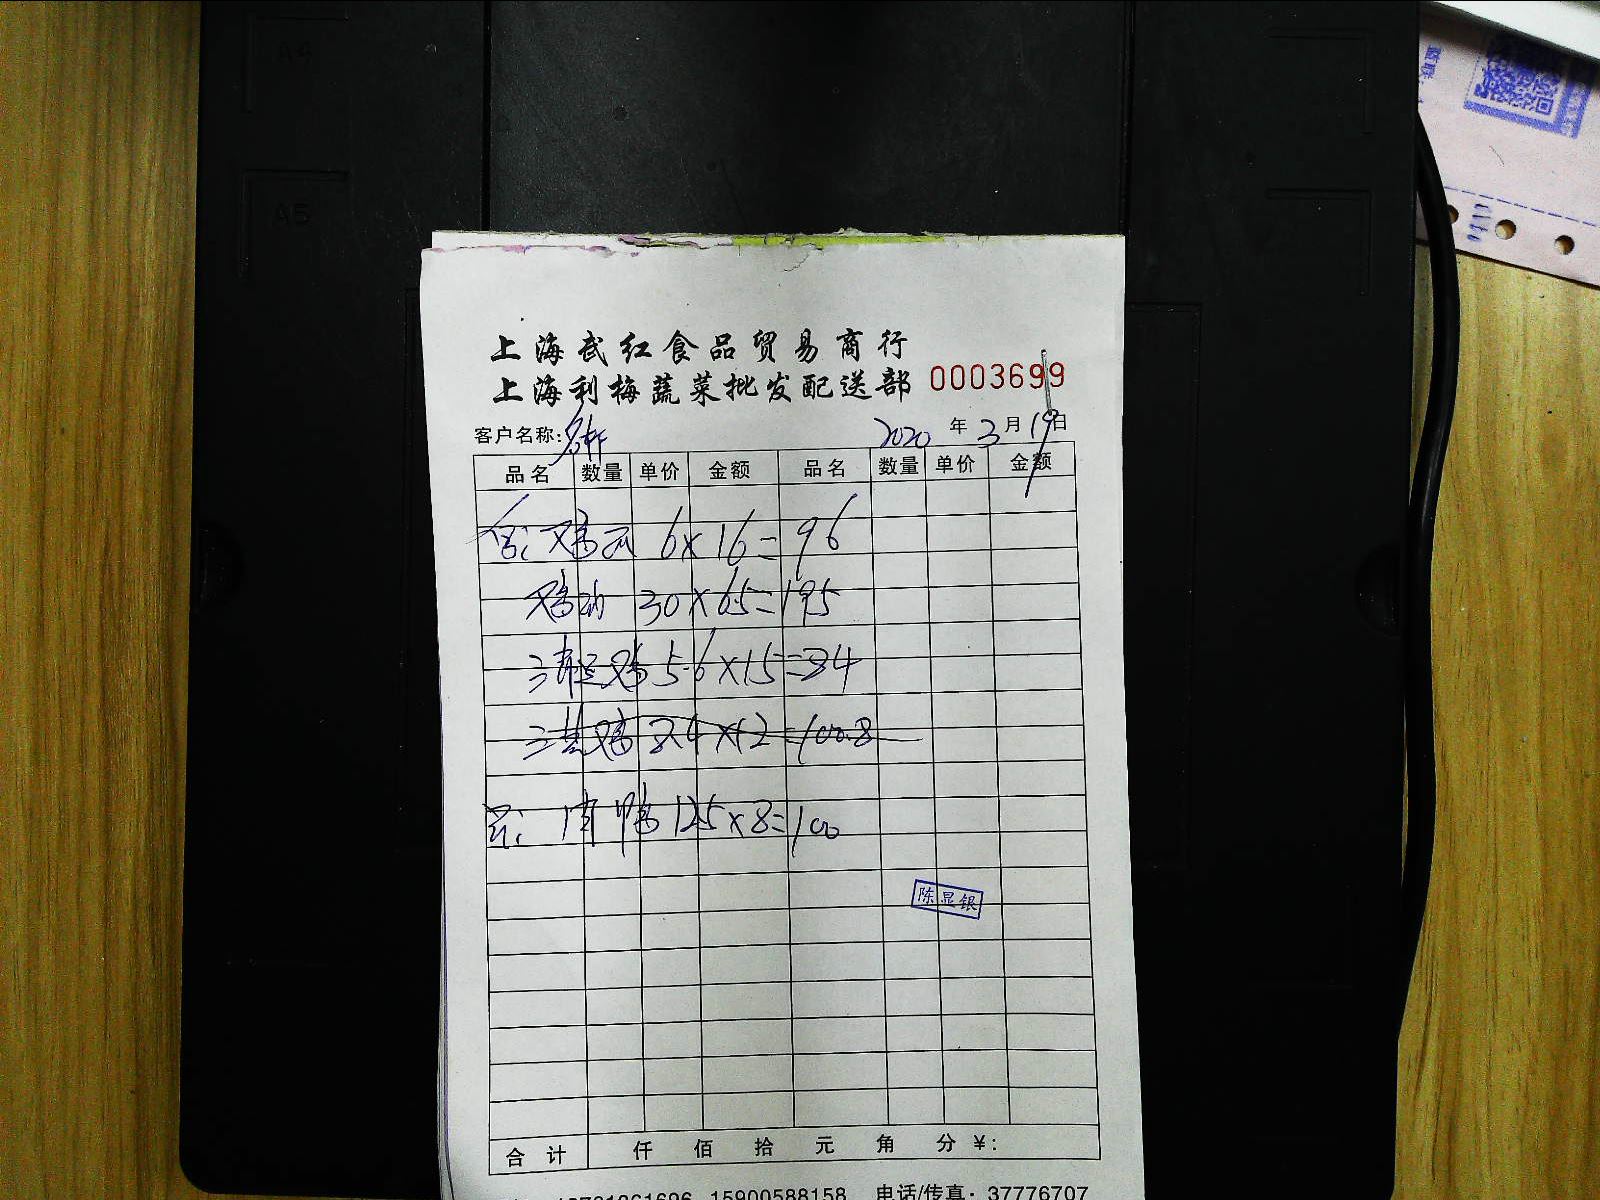 A4
A5
上海武红食品贸易商行
上海利梅蔬菜批发配送部 0003699
客户名称: 2020 年 3 月 19 日
品名 数量 单价 金额 品名 数量 单价 金额
鸡爪 6×16=96
鸡 30×6.5=195
鸡 5.6×15=84
鸡 8.4×12=100.8
鸭 12.5×8=100
陈显银
合计 仟 佰 拾 元 角 分 ¥:
15900588158 电话/传真: 37776707